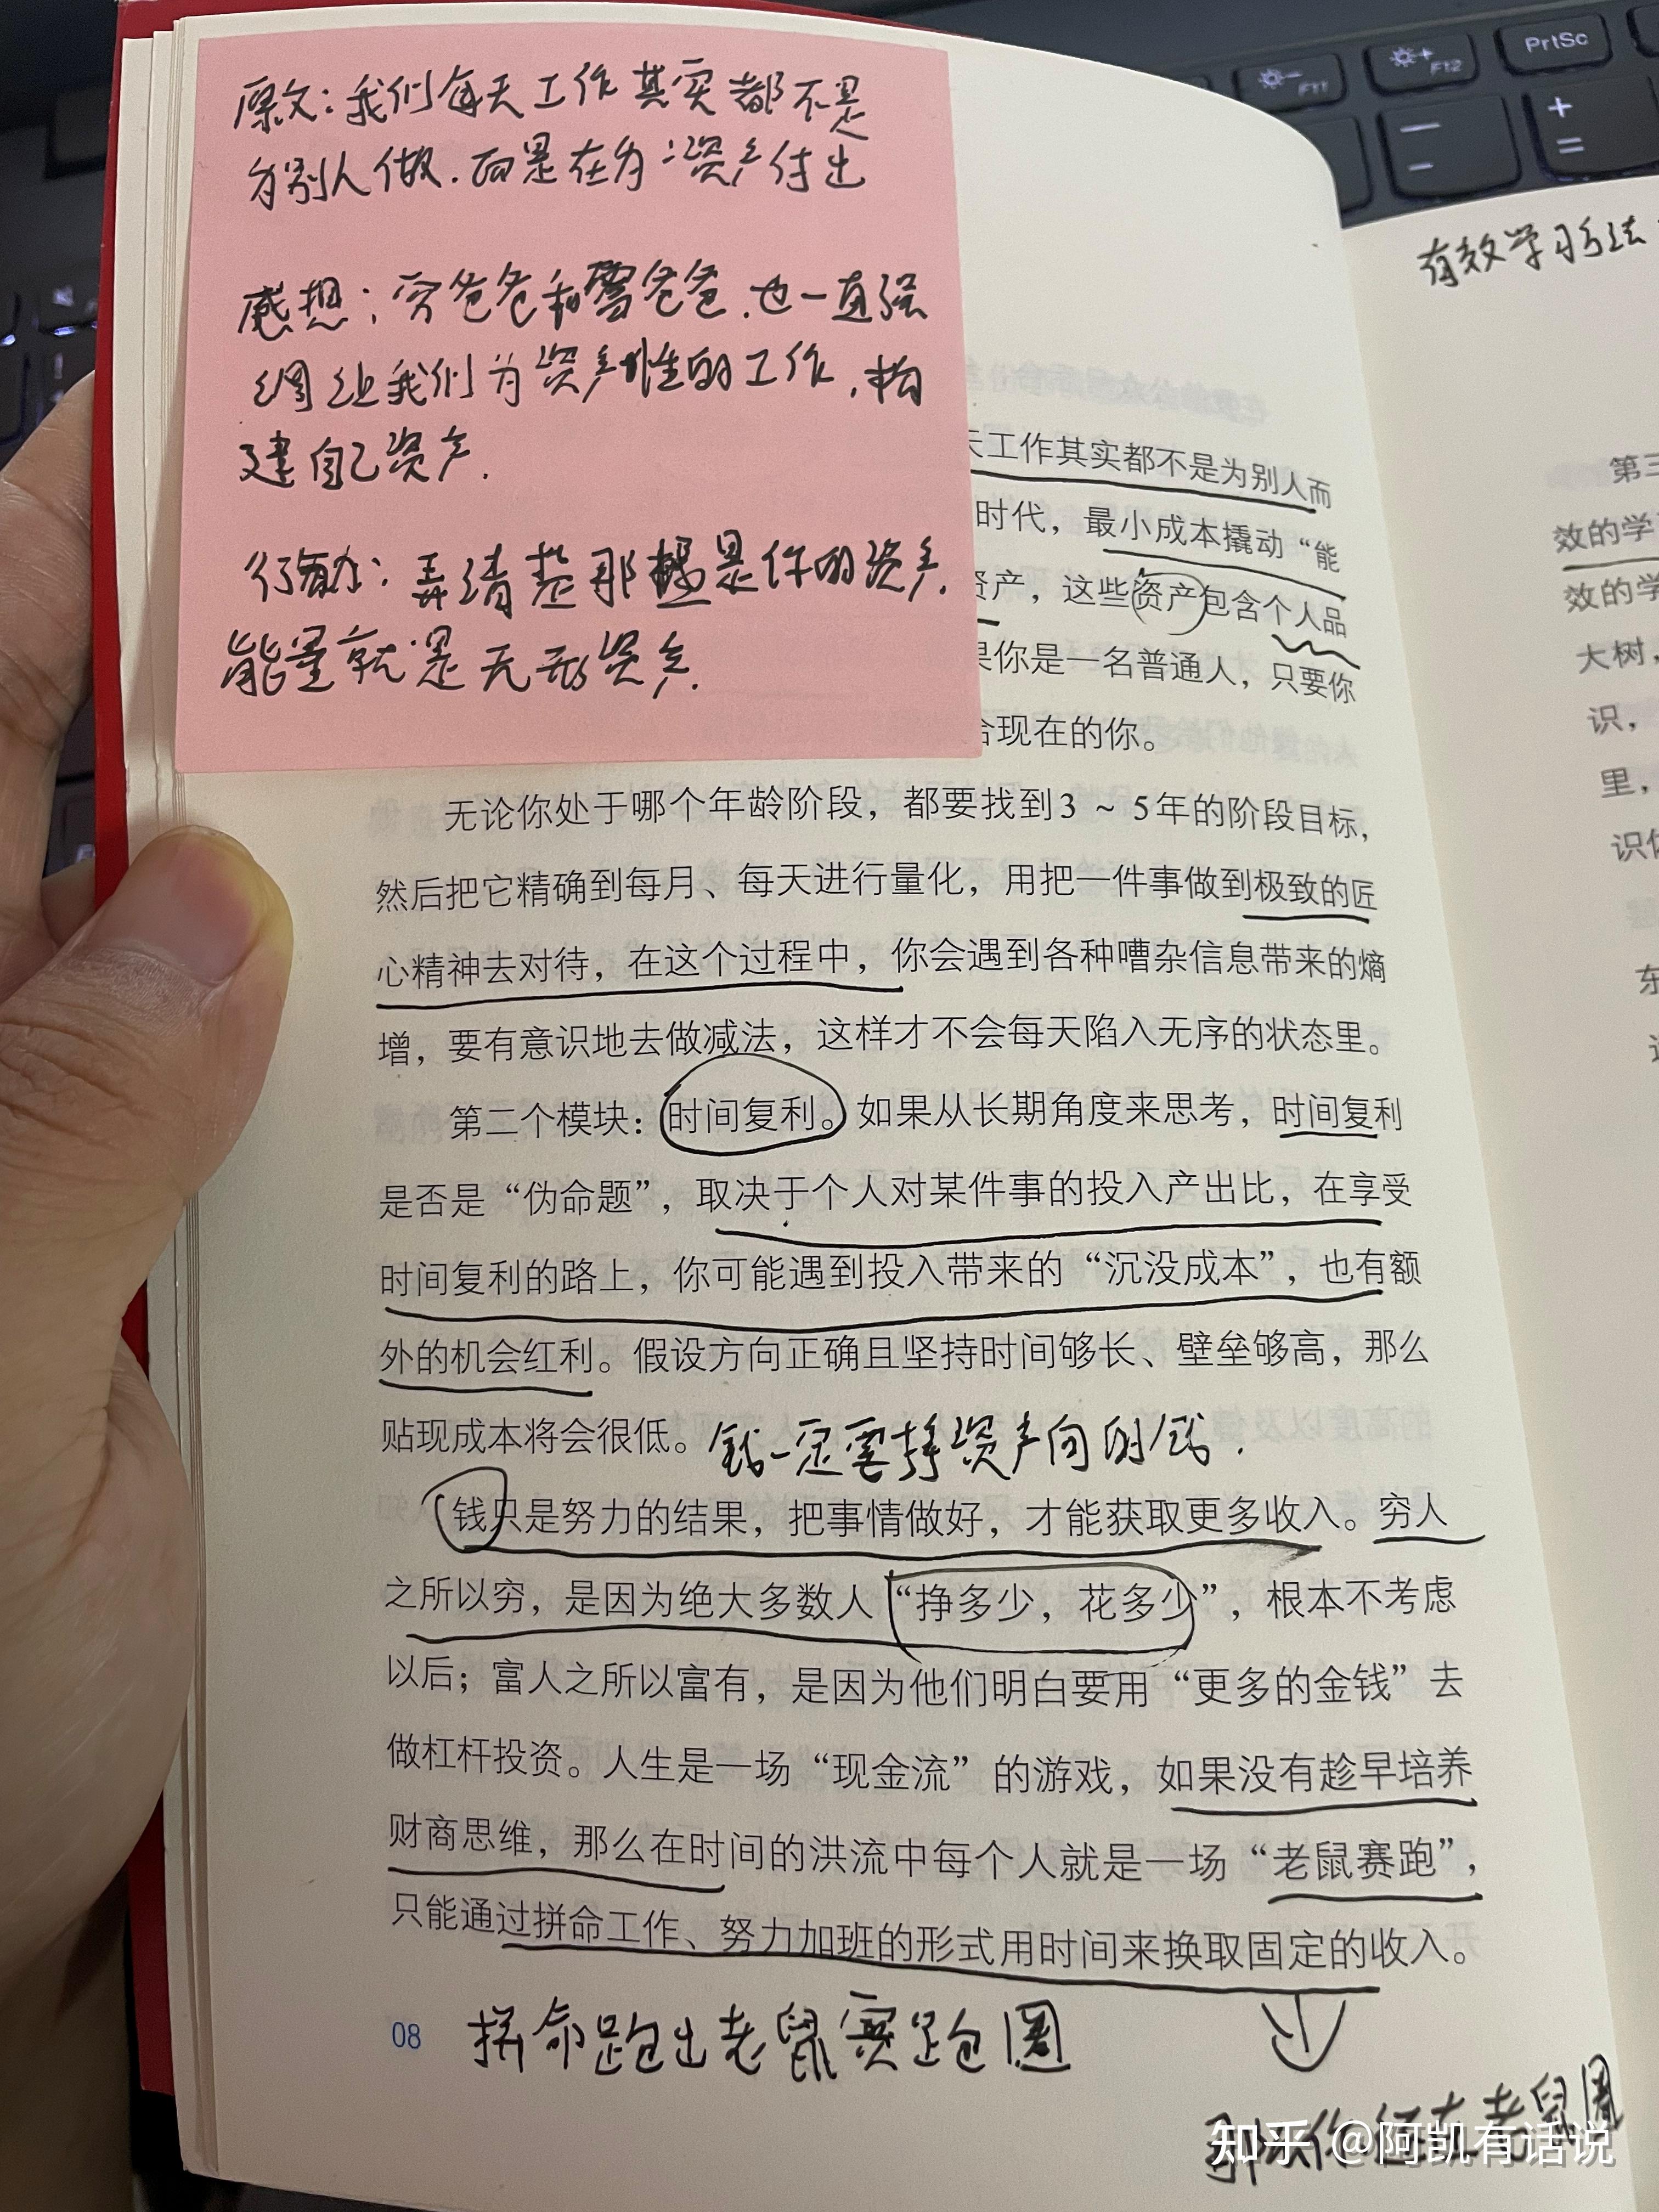 PrtSc
F11
F12
原文：我们每天工作其实都不是
为别人做．而是在为资产付出
感想：穷爸爸和富爸爸．也一直强
调让我们为资产性的工作，构
建自己资产．
行动：弄清楚那些是你的资产．
能量就是无形资产．
有效学习方法
天工作其实都不是为别人而
时代，最小成本撬动“能
资产，这些资产包含个人品
果你是一名普通人，只要你
合现在的你。
无论你处于哪个年龄阶段，都要找到3 ~ 5年的阶段目标，
然后把它精确到每月、每天进行量化，用把一件事做到极致的匠
心精神去对待，在这个过程中，你会遇到各种嘈杂信息带来的熵
增，要有意识地去做减法，这样才不会每天陷入无序的状态里。
第二个模块：时间复利。如果从长期角度来思考，时间复利
是否是“伪命题”，取决于个人对某件事的投入产出比，在享受
时间复利的路上，你可能遇到投入带来的“沉没成本”，也有额
外的机会红利。假设方向正确且坚持时间够长、壁垒够高，那么
贴现成本将会很低。
钱一定要挣资产向的钱．
钱只是努力的结果，把事情做好，才能获取更多收入。穷人
之所以穷，是因为绝大多数人“挣多少，花多少”，根本不考虑
以后；富人之所以富有，是因为他们明白要用“更多的金钱”去
做杠杆投资。人生是一场“现金流”的游戏，如果没有趁早培养
财商思维，那么在时间的洪流中每个人就是一场“老鼠赛跑”，
只能通过拼命工作、努力加班的形式用时间来换取固定的收入。
08
拼命跑出老鼠赛跑圈
老鼠圈
第三
效的学
效的学
大树，
识，
里，
东
知乎 @阿凯有话说